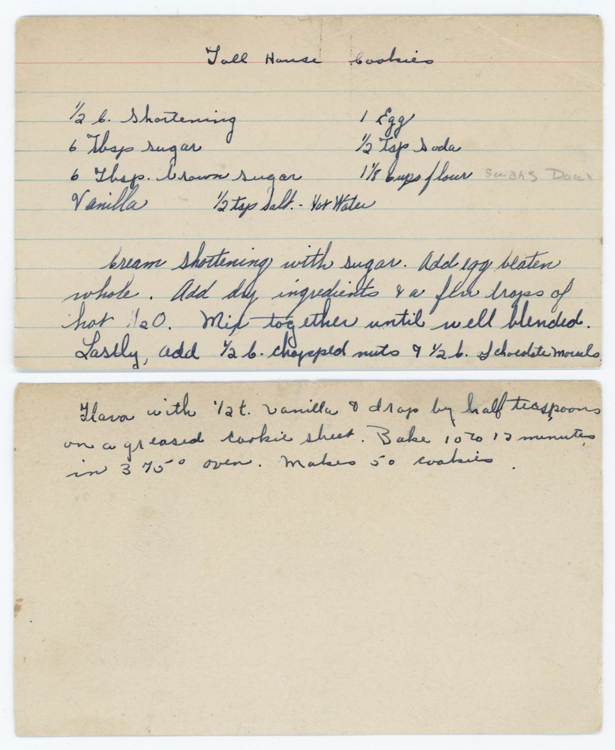 Toll House Cookies
½ C. Shortening 1 Egg
6 Tbsp sugar ½ Tsp Soda
6 Tbsp. brown sugar 1⅛ Cups flour Swans Down
Vanilla ½ tsp salt. - Hot Water
Cream shortening with sugar. Add egg beaten
whole. Add dry ingredients & a few drops of
hot H2O. Mix together until well blended.
Lastly, add ½ C. chopped nuts & ½ C. chocolate morsels
Flavor with ½ t. vanilla & drop by half teaspoons
on a greased cookie sheet. Bake 10 to 12 minutes
in 375° oven. Makes 50 cookies.